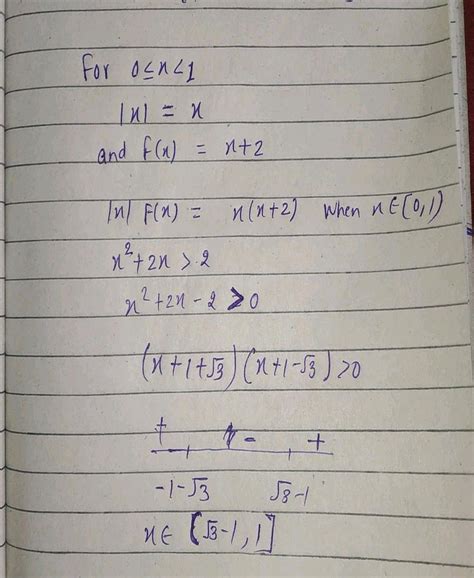 For 0≤x<1
|x| = x
and f(x) = x+2
|x| f(x) = x(x+2) when x∈[0,1)
x²+2x > 2
x²+2x-2 > 0
(x+1+√3)(x+1-√3) >0
+ - +
-1-√3 √3-1
x∈ [√3-1, 1]